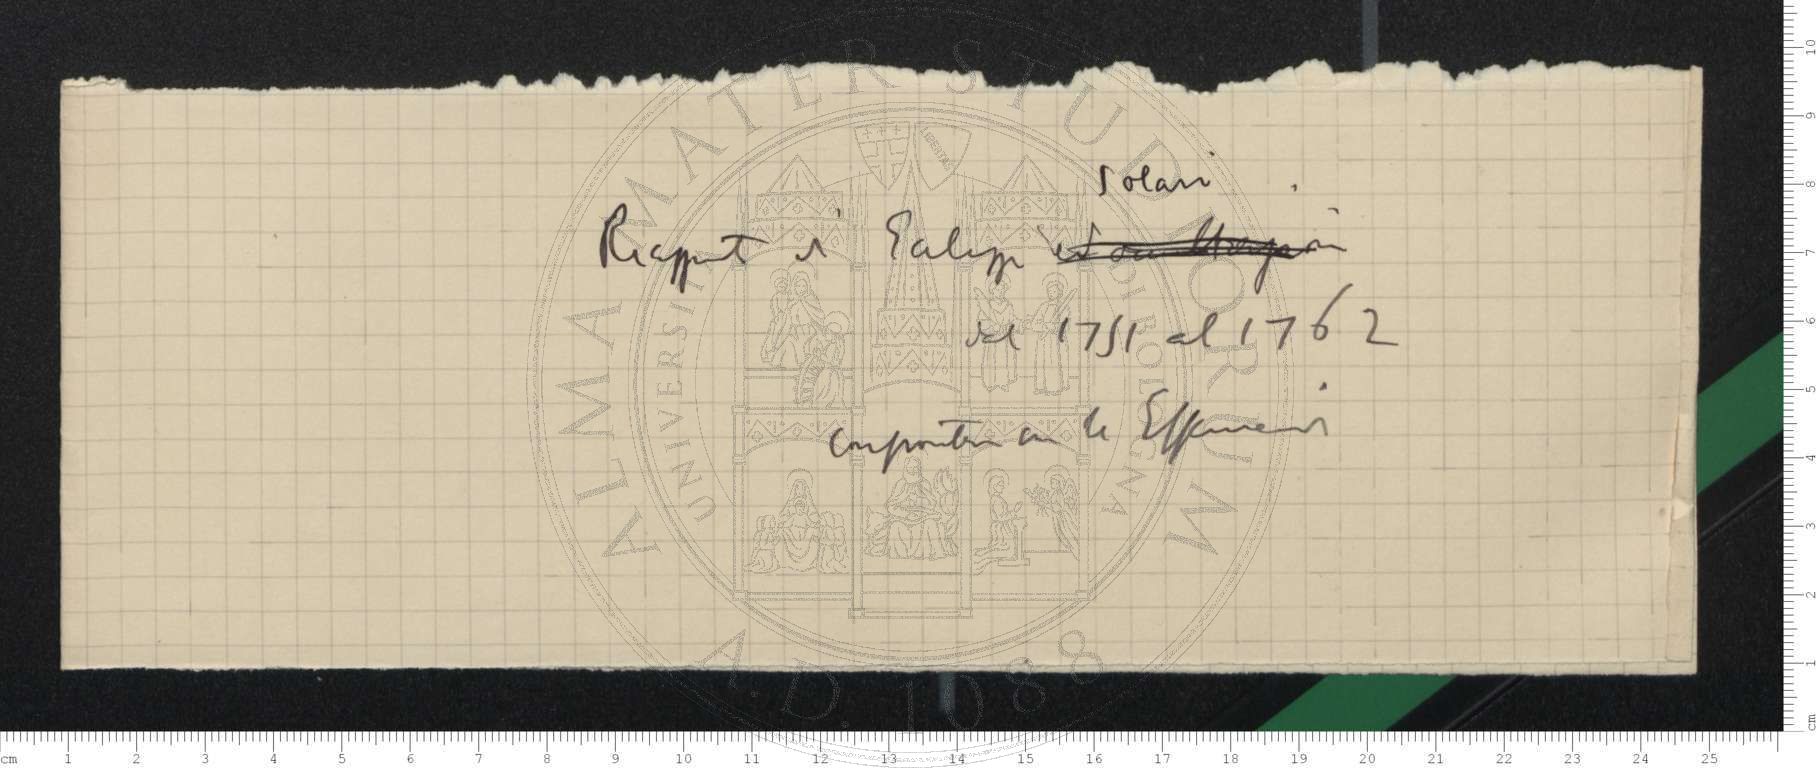 Solari
Riassunti di Eclissi
del 1751 al 1762
confrontati con le Effemeridi
ALMA MATER STUDIORUM
UNIVERSITÀ DI BOLOGNA
A.D. 1088
LIBERTAS
cm 1 2 3 4 5 6 7 8 9 10 11 12 13 14 15 16 17 18 19 20 21 22 23 24 25
cm 1 2 3 4 5 6 7 8 9 10